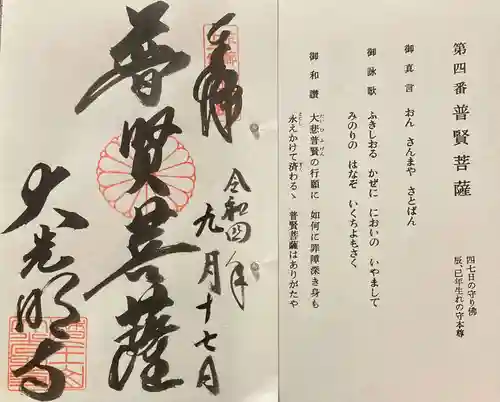 第四番 普賢菩薩
四七日の守り佛
辰、巳年生れの守本尊
御真言 おん さんまや さとばん
御詠歌 ふきしおる かぜに においの いやまして
みのりの はなぞ いくちよもさく
御和讃 大悲普賢の行願に 如何に罪障深き身も
永えかけて済わるゝ 普賢菩薩はありがたや
奉拝
令和四年
九月十七日
普賢菩薩
大光明寺